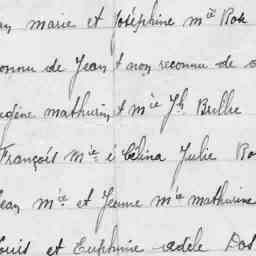 an marie et Joséphine mie Ros
onnu de Jean t non reconnu de
ugène mathurin t mie Jh Bullie
François mie i Célina Julie Ro
Jean mie et Jeanne mie mathurine
ouis et Euphrine adèle Dos